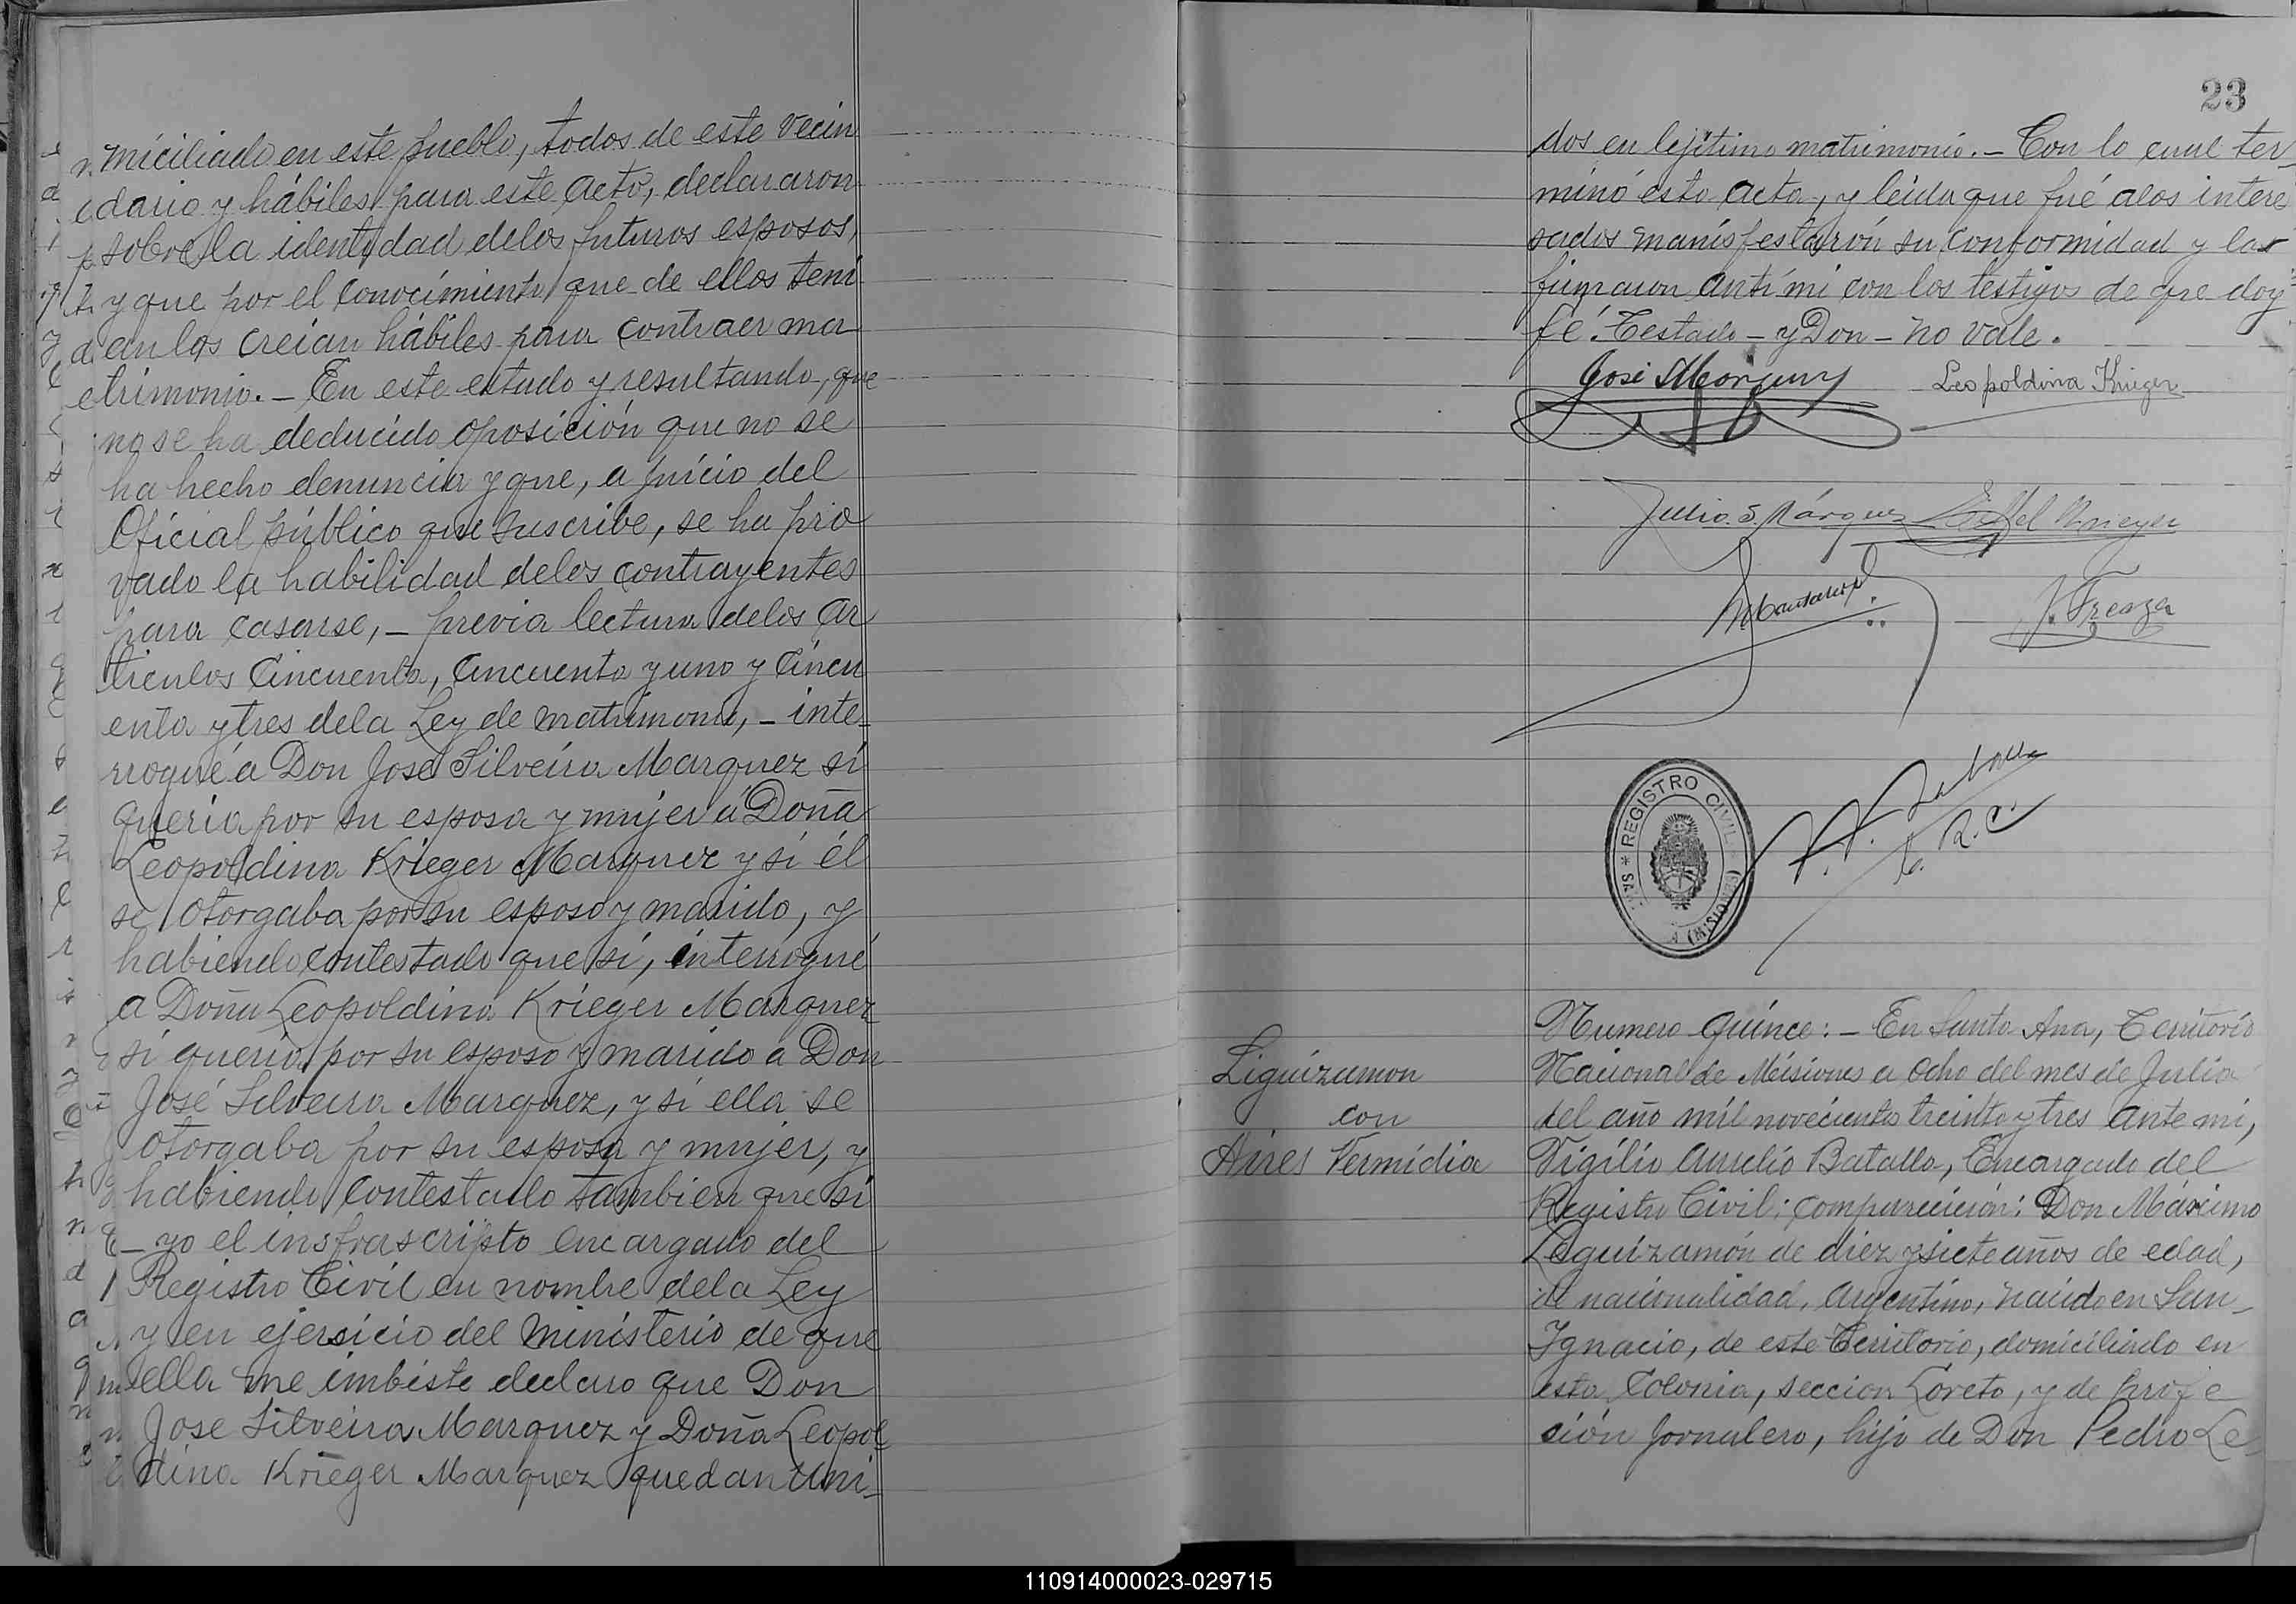 miciliado en este pueblo, todos de este vecin
dario y hábiles para este acto, declararon
sobre la identidad delos futuros esposos,
y que por el conocimiento que de ellos tení
an los creían hábiles para contraer ma
trimonio. – En este estado y resultando, que
no se ha deducido oposición que no se
ha hecho denuncia y que, a juicio del
Oficial público que suscribe, se ha pro
vado la habilidad delos contrayentes
para casarse, – previa lectura delos ar
ticulos Cincuenta, Cincuenta y uno y Cincu
enta y tres dela Ley de matrimonio, – inte–
rrogué a Don José Silveira Marquez si
quería por su esposa y mujer á Doña
Leopoldina Krieger Marquez y si él
se otorgaba por su esposo y marido, y
habiendo contestado que si, interrogué
a Doña Leopoldina Krieger Marquez
si quería por su esposo y marido a Don
José Silveira Marquez, y si ella se
otorgaba por su esposa y mujer, y
habiendo contestado tambien que si
– yo el insfrascripto encargado del
Registro Civil en nombre dela Ley
y en ejersicio del ministerio de que
ella me imbiste declaro que Don
Jose Silveira Marquez y Doña Leopol
dina Krieger Marquez quedan uni–
23
dos en lejítimo matrimonio. – Con lo cual ter–
minó esta acta, y leida que fué alos intere
sados manisfestarón su conformidad y las
firmaron antí mi con los testigos de que doy
fé. Testado – y Don – no vale.
José Leopoldina Krieger
Julio S. Márquez
J.
REGISTRO CIVIL
(MISIONES)
R.C.
Liguizamon
con
Aires Vermidia
Numero Quince: – En Santa Ana, Territorio
Nacional de Misiones a ocho del mes de Julio
del año mil novecientos treinta y tres ante mi,
Vigilio Aurelio Batalla, Encargado del
Registro Civil; comparecición: Don Máximo
Leguizamón de diez y siete años de edad,
de nacionalidad, argentino, nacido en San–
Ygnacio, de este Territorio, domiciliado en
esta Colonia, seccion Loreto, y de profe
sión jornalero, hijo de Don Pedro Le–
110914000023-029715